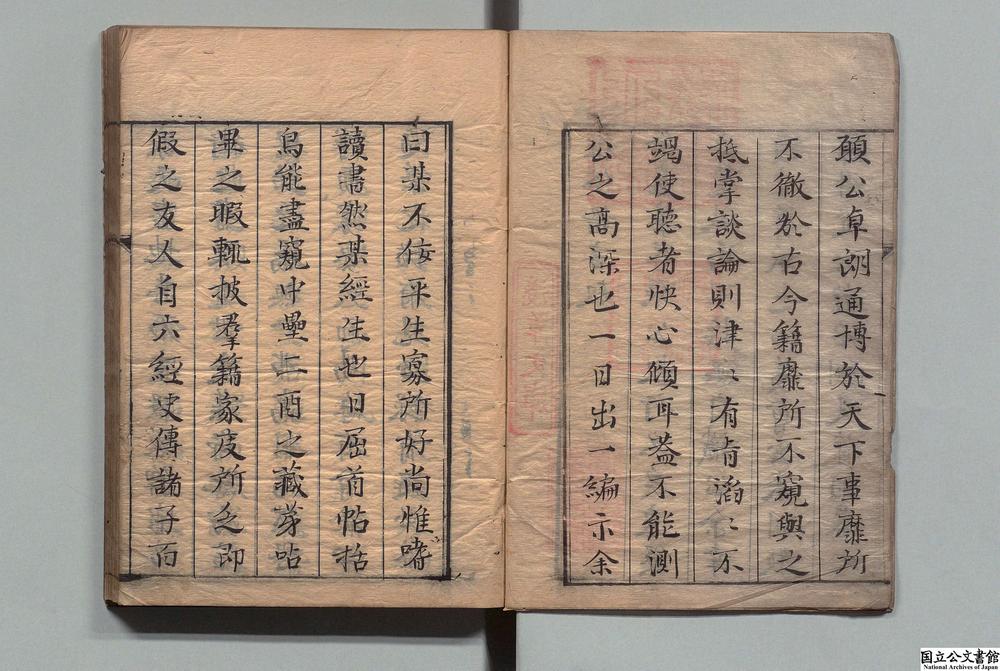 頋公卓朗通博於天下事靡所
不徹於古今籍靡所不窺與之
抵掌談論則津〻有旨滔〻不
竭使聽者快心傾耳葢不能測
公之高深也一日出一編示余
曰某不佞平生寡所好尚惟嗜
讀書然某經生也日屈首帖括
烏能盡窺中壘二酉之藏第呫
畢之暇輒披羣籍家庋所乏即
假之友人自六經史傳諸子百
国立公文書館
National Archives of Japan